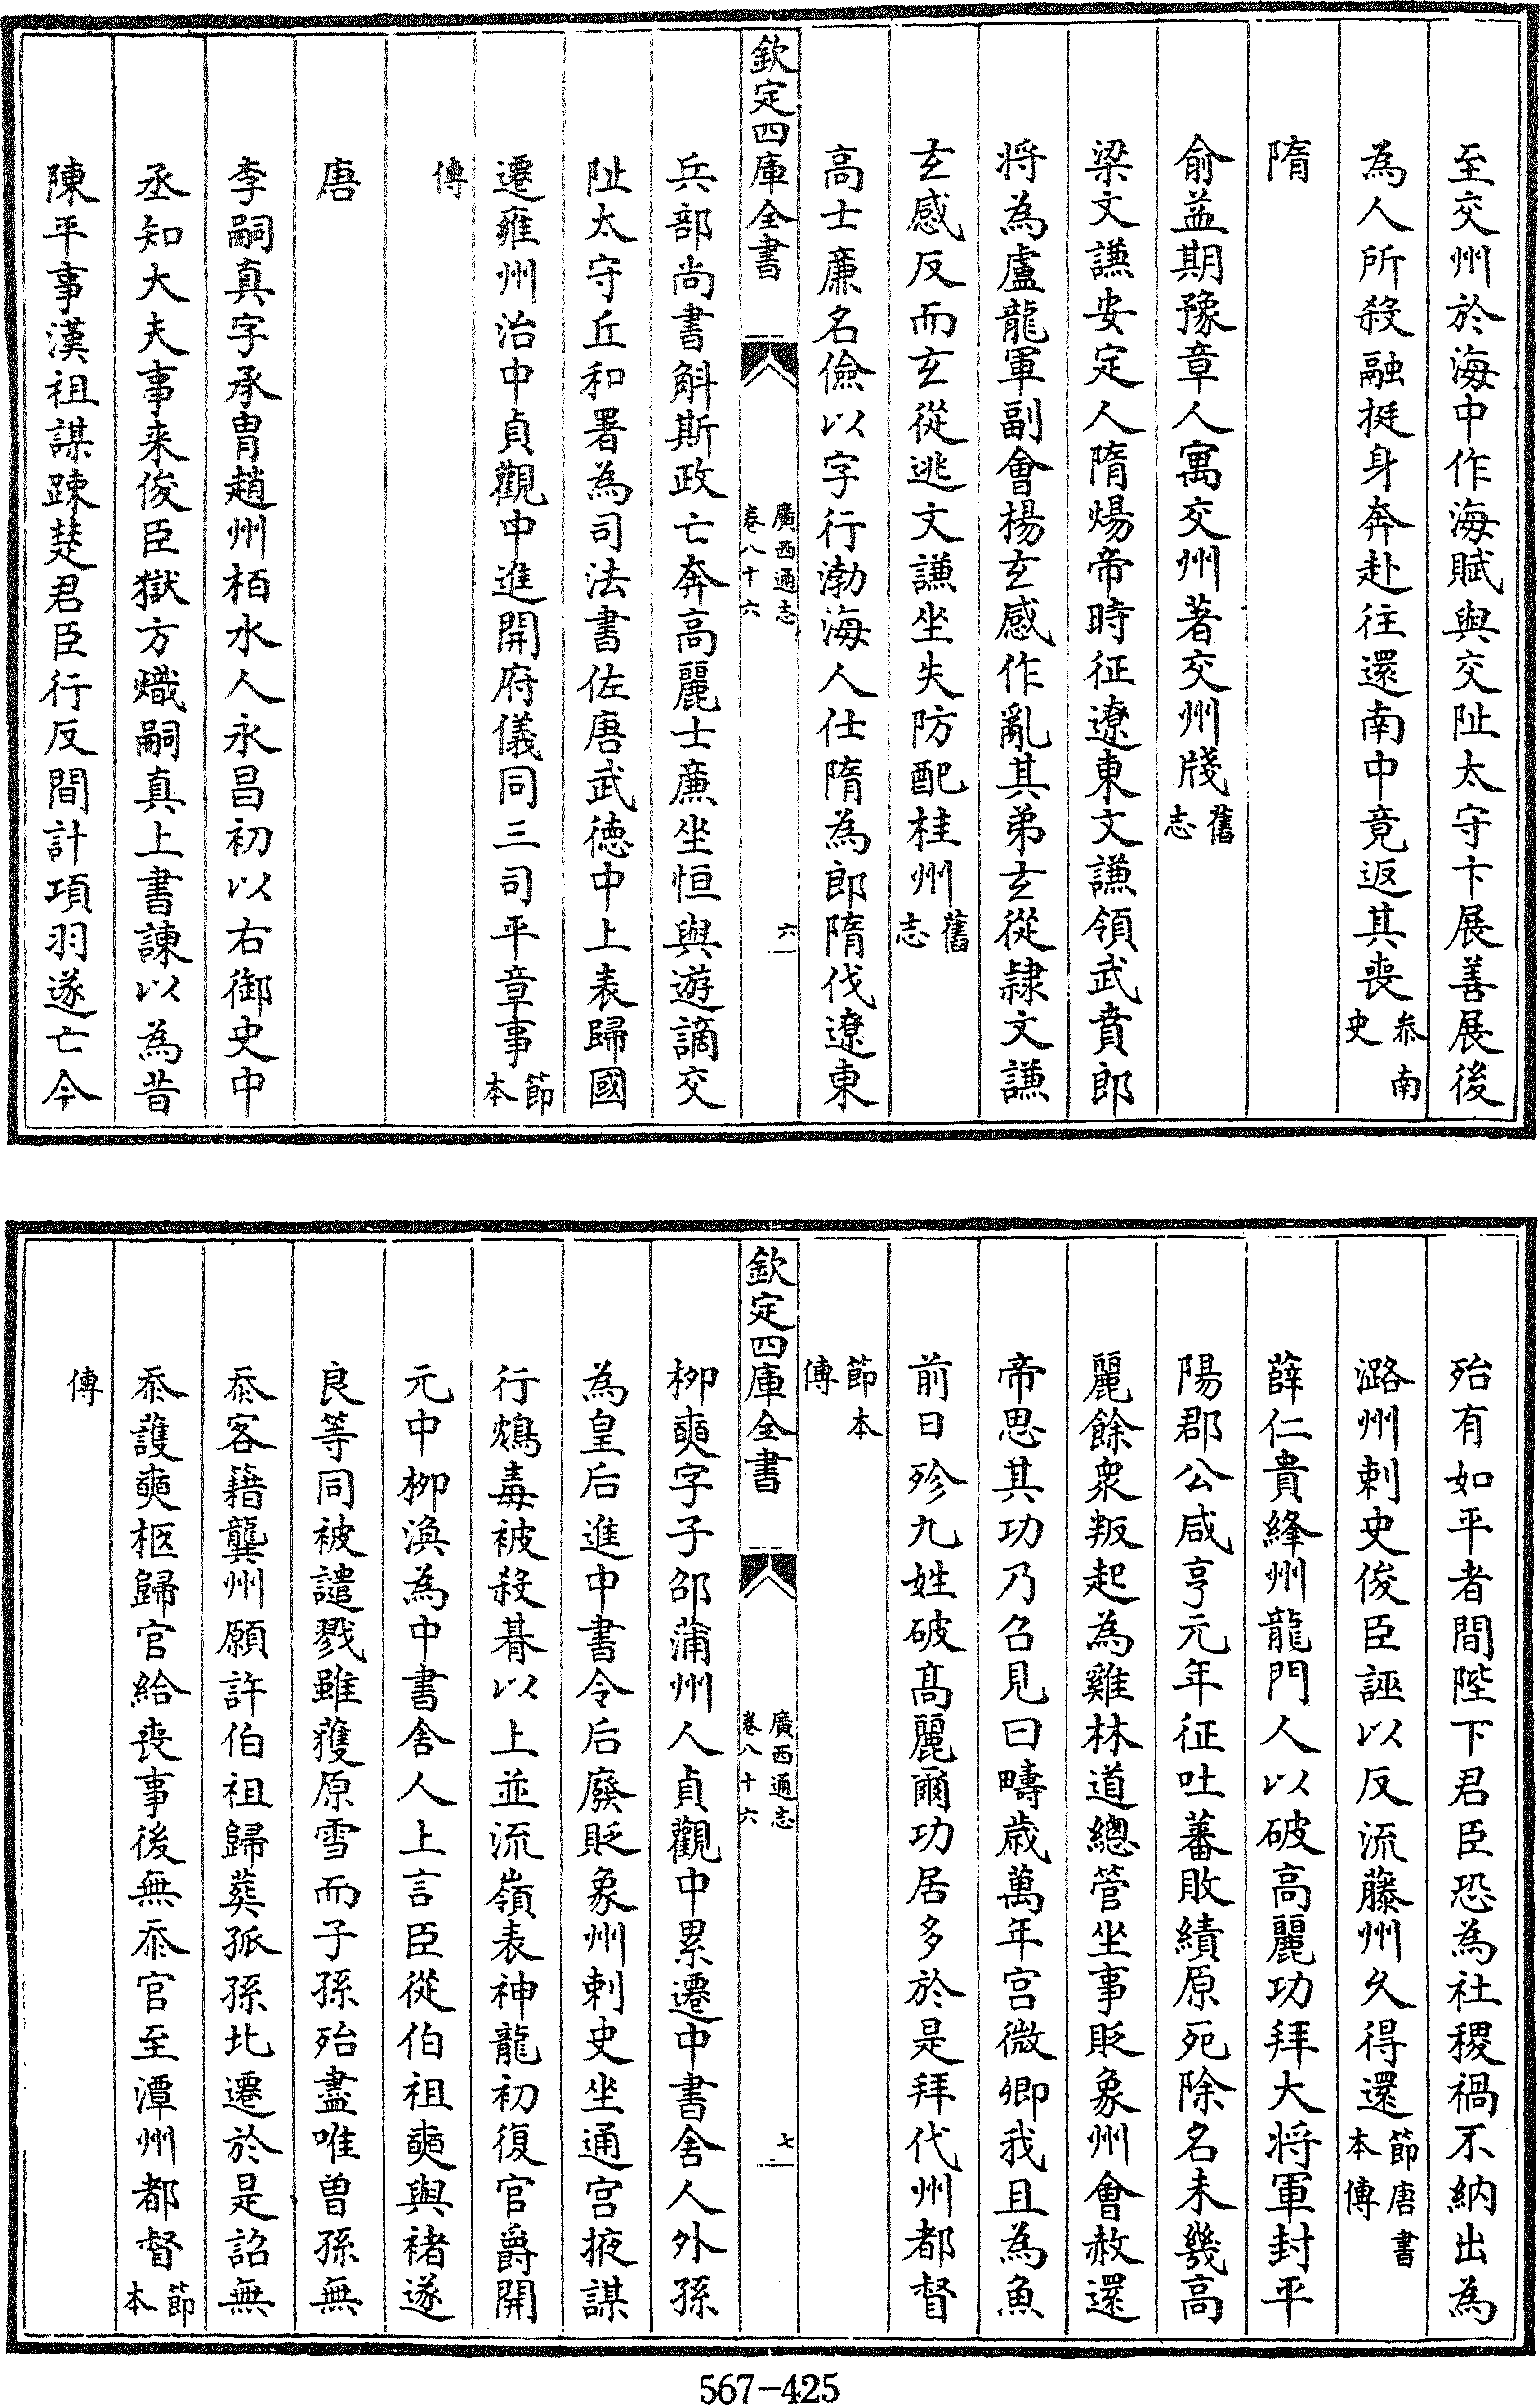 至交州於海中作海賦與交阯太守卞展善展後
為人所殺融挺身奔赴往還南中竟返其喪叅南史
隋
俞益期豫章人寓交州著交州牋舊志
梁文謙安定人隋煬帝時征遼東文謙領武賁郎
將為盧龍軍副會楊玄感作亂其弟玄從隷文謙
玄感反而玄從逃文謙坐失防配桂州舊志
高士廉名儉以字行渤海人仕隋為郎隋伐遼東
欽定四庫全書 廣西通志卷八十六 六
兵部尚書斛斯政亡奔高麗士廉坐恒與遊謫交
阯太守丘和署為司法書佐唐武德中上表歸國
遷雍州治中貞觀中進開府儀同三司平章事節本
傳
唐
李嗣真字承胄趙州栢水人永昌初以右御史中
丞知大夫事来俊臣獄方熾嗣真上書諫以為昔
陳平事漢祖謀踈楚君臣行反間計項羽遂亡今
殆有如平者間陛下君臣恐為社稷禍不納出為
潞州刺史俊臣誣以反流藤州久得還節唐書本傳
薛仁貴絳州龍門人以破高麗功拜大將軍封平
陽郡公咸亨元年征吐蕃敗績原死除名未幾高
麗餘衆叛起為雞林道總管坐事貶象州會赦還
帝思其功乃召見曰疇歲萬年宫微卿我且為魚
前日殄九姓破髙麗爾功居多於是拜代州都督
節本傳
欽定四庫全書 廣西通志卷八十六 七
柳奭字子邵蒲州人貞觀中累遷中書舍人外孫
為皇后進中書令后廢貶象州刺史坐通宫掖謀
行鴆毒被殺朞以上並流嶺表神龍初復官爵開
元中柳渙為中書舍人上言臣從伯祖奭與禇遂
良等同被譴戮雖獲原雪而子孫殆盡唯曾孫無
忝客籍龔州願許伯祖歸葬孤孫北遷於是詔無
忝護奭柩歸官給喪事後無忝官至潭州都督節本
傳
567-425